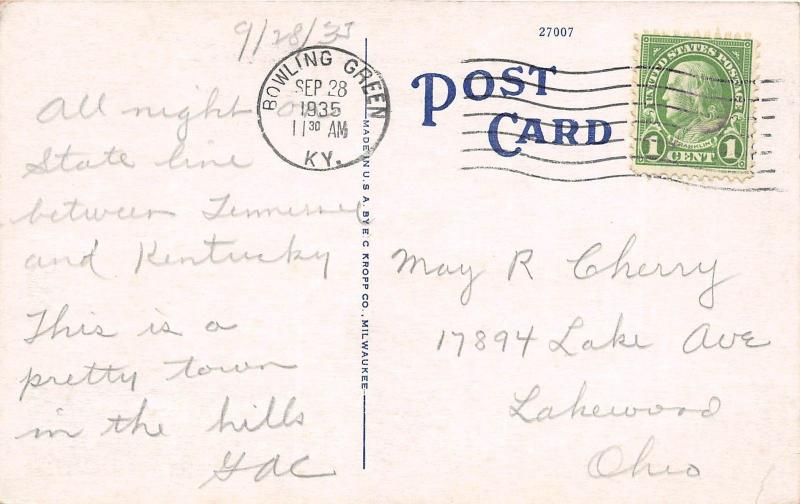 9/28/35
All night on
State line
between Tennessee
and Kentucky
This is a
pretty town
in the hills
GAC
BOWLING GREEN
SEP 28
1935
11 30 AM
KY.
MADE IN U.S.A. BY E.C. KROPP CO., MILWAUKEE
27007
POST
CARD
UNITED STATES POSTAGE
FRANKLIN
1 CENT 1
May R Cherry
17894 Lake Ave
Lakewood
Ohio